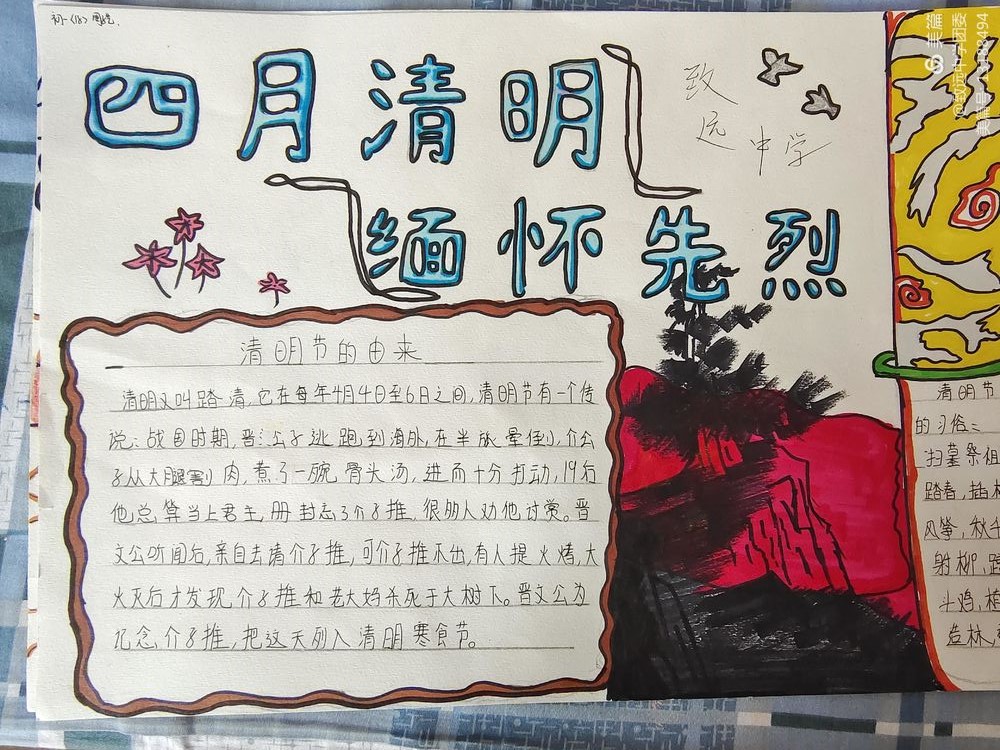 初一(8)
四月清明
致远中学
缅怀先烈
清明节的由来
清明又叫踏清,它在每年4月4日至6日之间,清明节有一个传
说:战国时期,晋公子逃跑到海外,在半旅晕倒,介公
子从大腿割肉,煮了一碗骨头汤,进而十分打动,19后
他总算当上君主,册封忘了介子推,很多人劝他讨赏。晋
文公听闻后,亲自去请介子推,可介子推不出,有人提火烤,大
火灭后才发现介子推和老大妈杀死于大树下。晋文公为
忆念介子推,把这天列入清明寒食节。
清明节
的习俗:
扫墓祭祖
踏春,插
风筝,秋千
射柳,
斗鸡,
造林,
美篇
@致远中学团委
美篇号